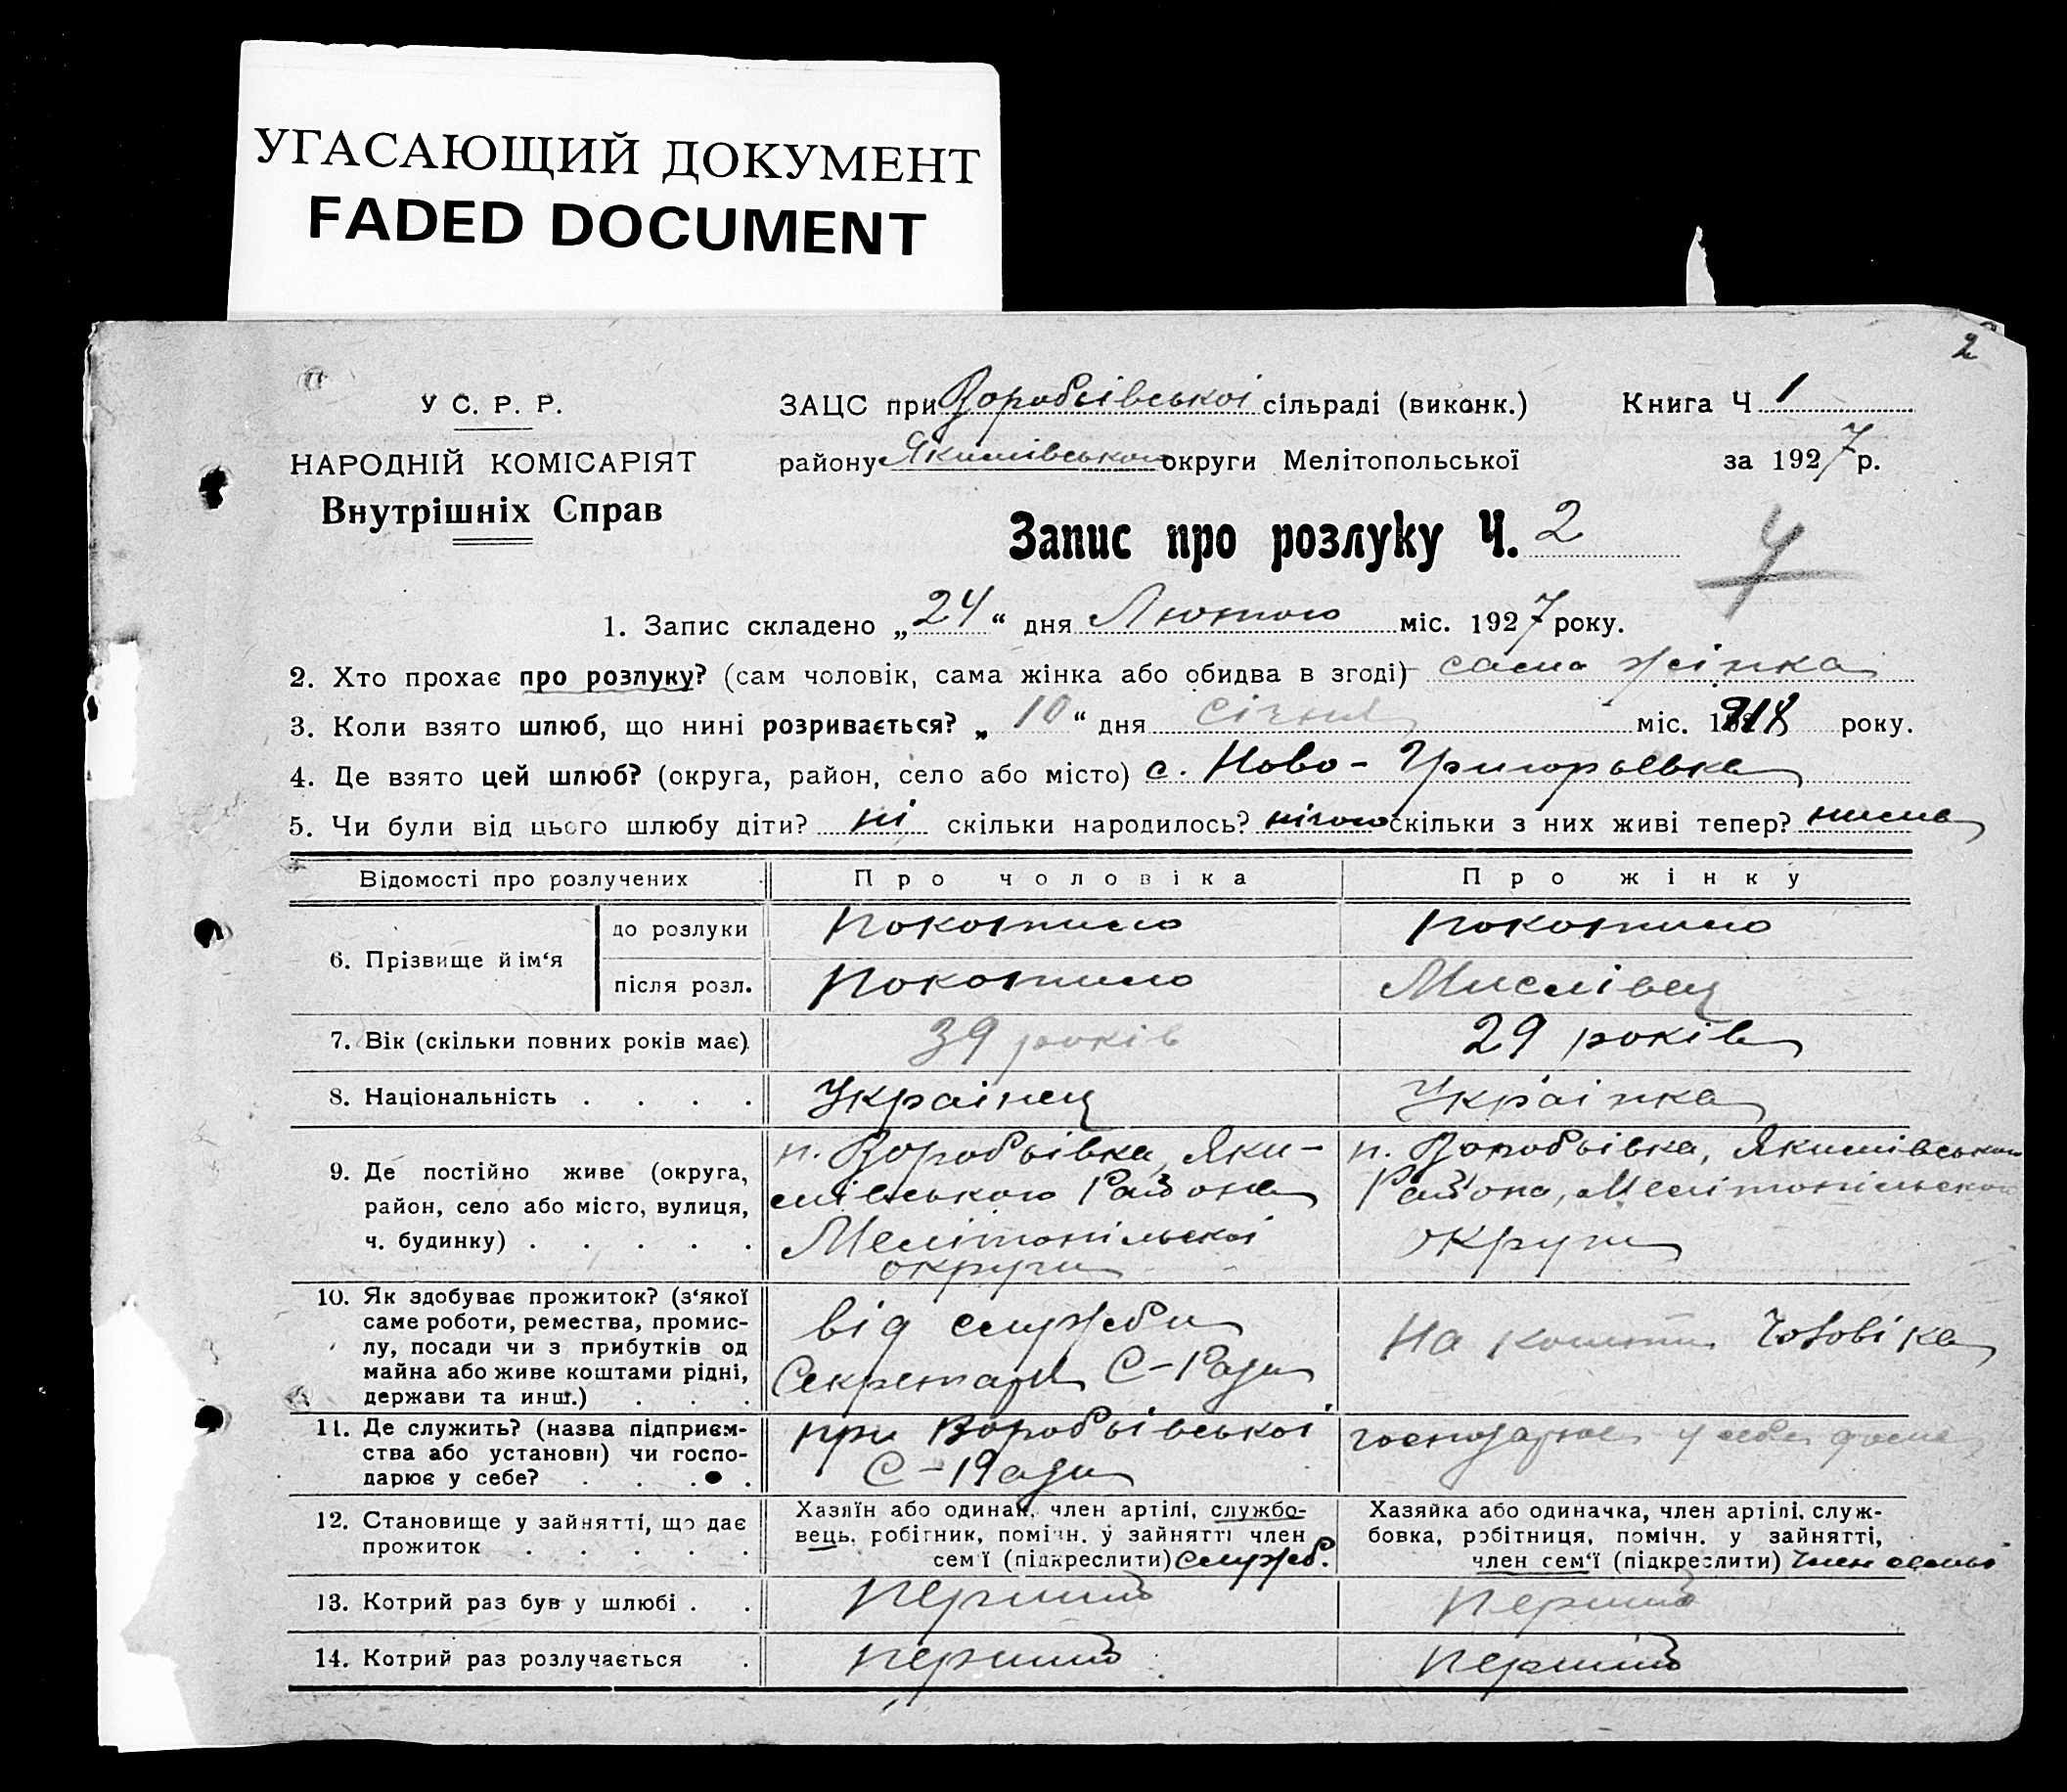 УГАСАЮЩИЙ ДОКУМЕНТ
FADED DOCUMENT
2
У С. Р. Р.
НАРОДНІЙ КОМІСАРІЯТ
Внутрішніх Справ
ЗАЦС при Воробьівськоі сільраді (виконк.)
району Якимівського округи Мелітопольської
Книга Ч 1
за 1927 р.
Запис про розлуку Ч. 2
4
1. Запис складено „24“ дня Лютого міс. 1927 року.
2. Хто прохає про розлуку? (сам чоловік, сама жінка або обидва в згоді) сама жінка
3. Коли взято шлюб, що нині розривається? „10“ дня січня міс. 1918 року.
4. Де взято цей шлюб? (округа, район, село або місто) с. Ново-Григорьевка
5. Чи були від цього шлюбу діти? ні скільки народилось? нічого скільки з них живі тепер? нема
Відомості про розлучених Про чоловіка Про жінку
6. Прізвище й ім‘я
до розлуки Покотило Покотило
після розл. Покотило Мислівец
7. Вік (скільки повних років має) 39 років 29 років
8. Національність . . . . Украінец Украінка
9. Де постійно живе (округа,
район, село або місто, вулиця,
ч. будинку) . . . . .
п. Воробьівка, Яки-
мівського Района
Мелітопільскоі
округи
п. Воробьівка, Якимівського
Района, Мелітопільскоі
округи
10. Як здобуває прожиток? (з‘якої
саме роботи, ремества, промис-
лу, посади чи з прибутків од
майна або живе коштами рідні,
держави та инш.) . . .
від служби
Секретаря С-Ради
На кошти Чоловіка
11. Де служить? (назва підприєм-
ства або установи) чи госпо-
дарює у себе? . . . .
при Воробьівськоі
С-Ради
господарює у себе дома
12. Становище у зайнятті, що дає
прожиток . . . . .
Хазяїн або одинак, член артілі, службо-
вець, робітник, помічн. у зайнятті член
сем'ї (підкреслити) служб.
Хазяйка або одиначка, член артілі, служ-
бовка, робітниця, помічн. у зайнятті,
член сем‘ї (підкреслити) член семьі
13. Котрий раз був у шлюбі . . Перший Перший
14. Котрий раз розлучається . перший перший